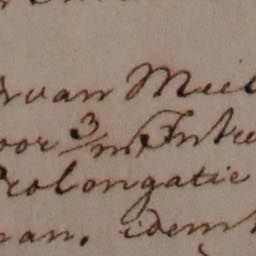 van Meel
oor 3/m Intre
Prolongatie
man. idem